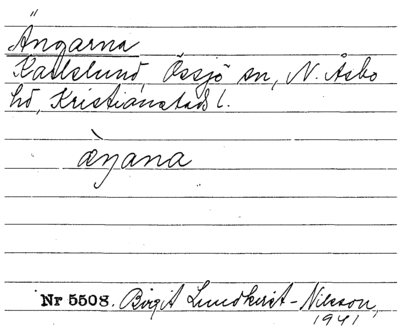 Ängarna
Karlslund, Össjö sn, N. Åsbo
hd, Kristianstads l.
æ̀ŋana
Nr 5508. Birgit Lundkvist-Nilsson,
1941